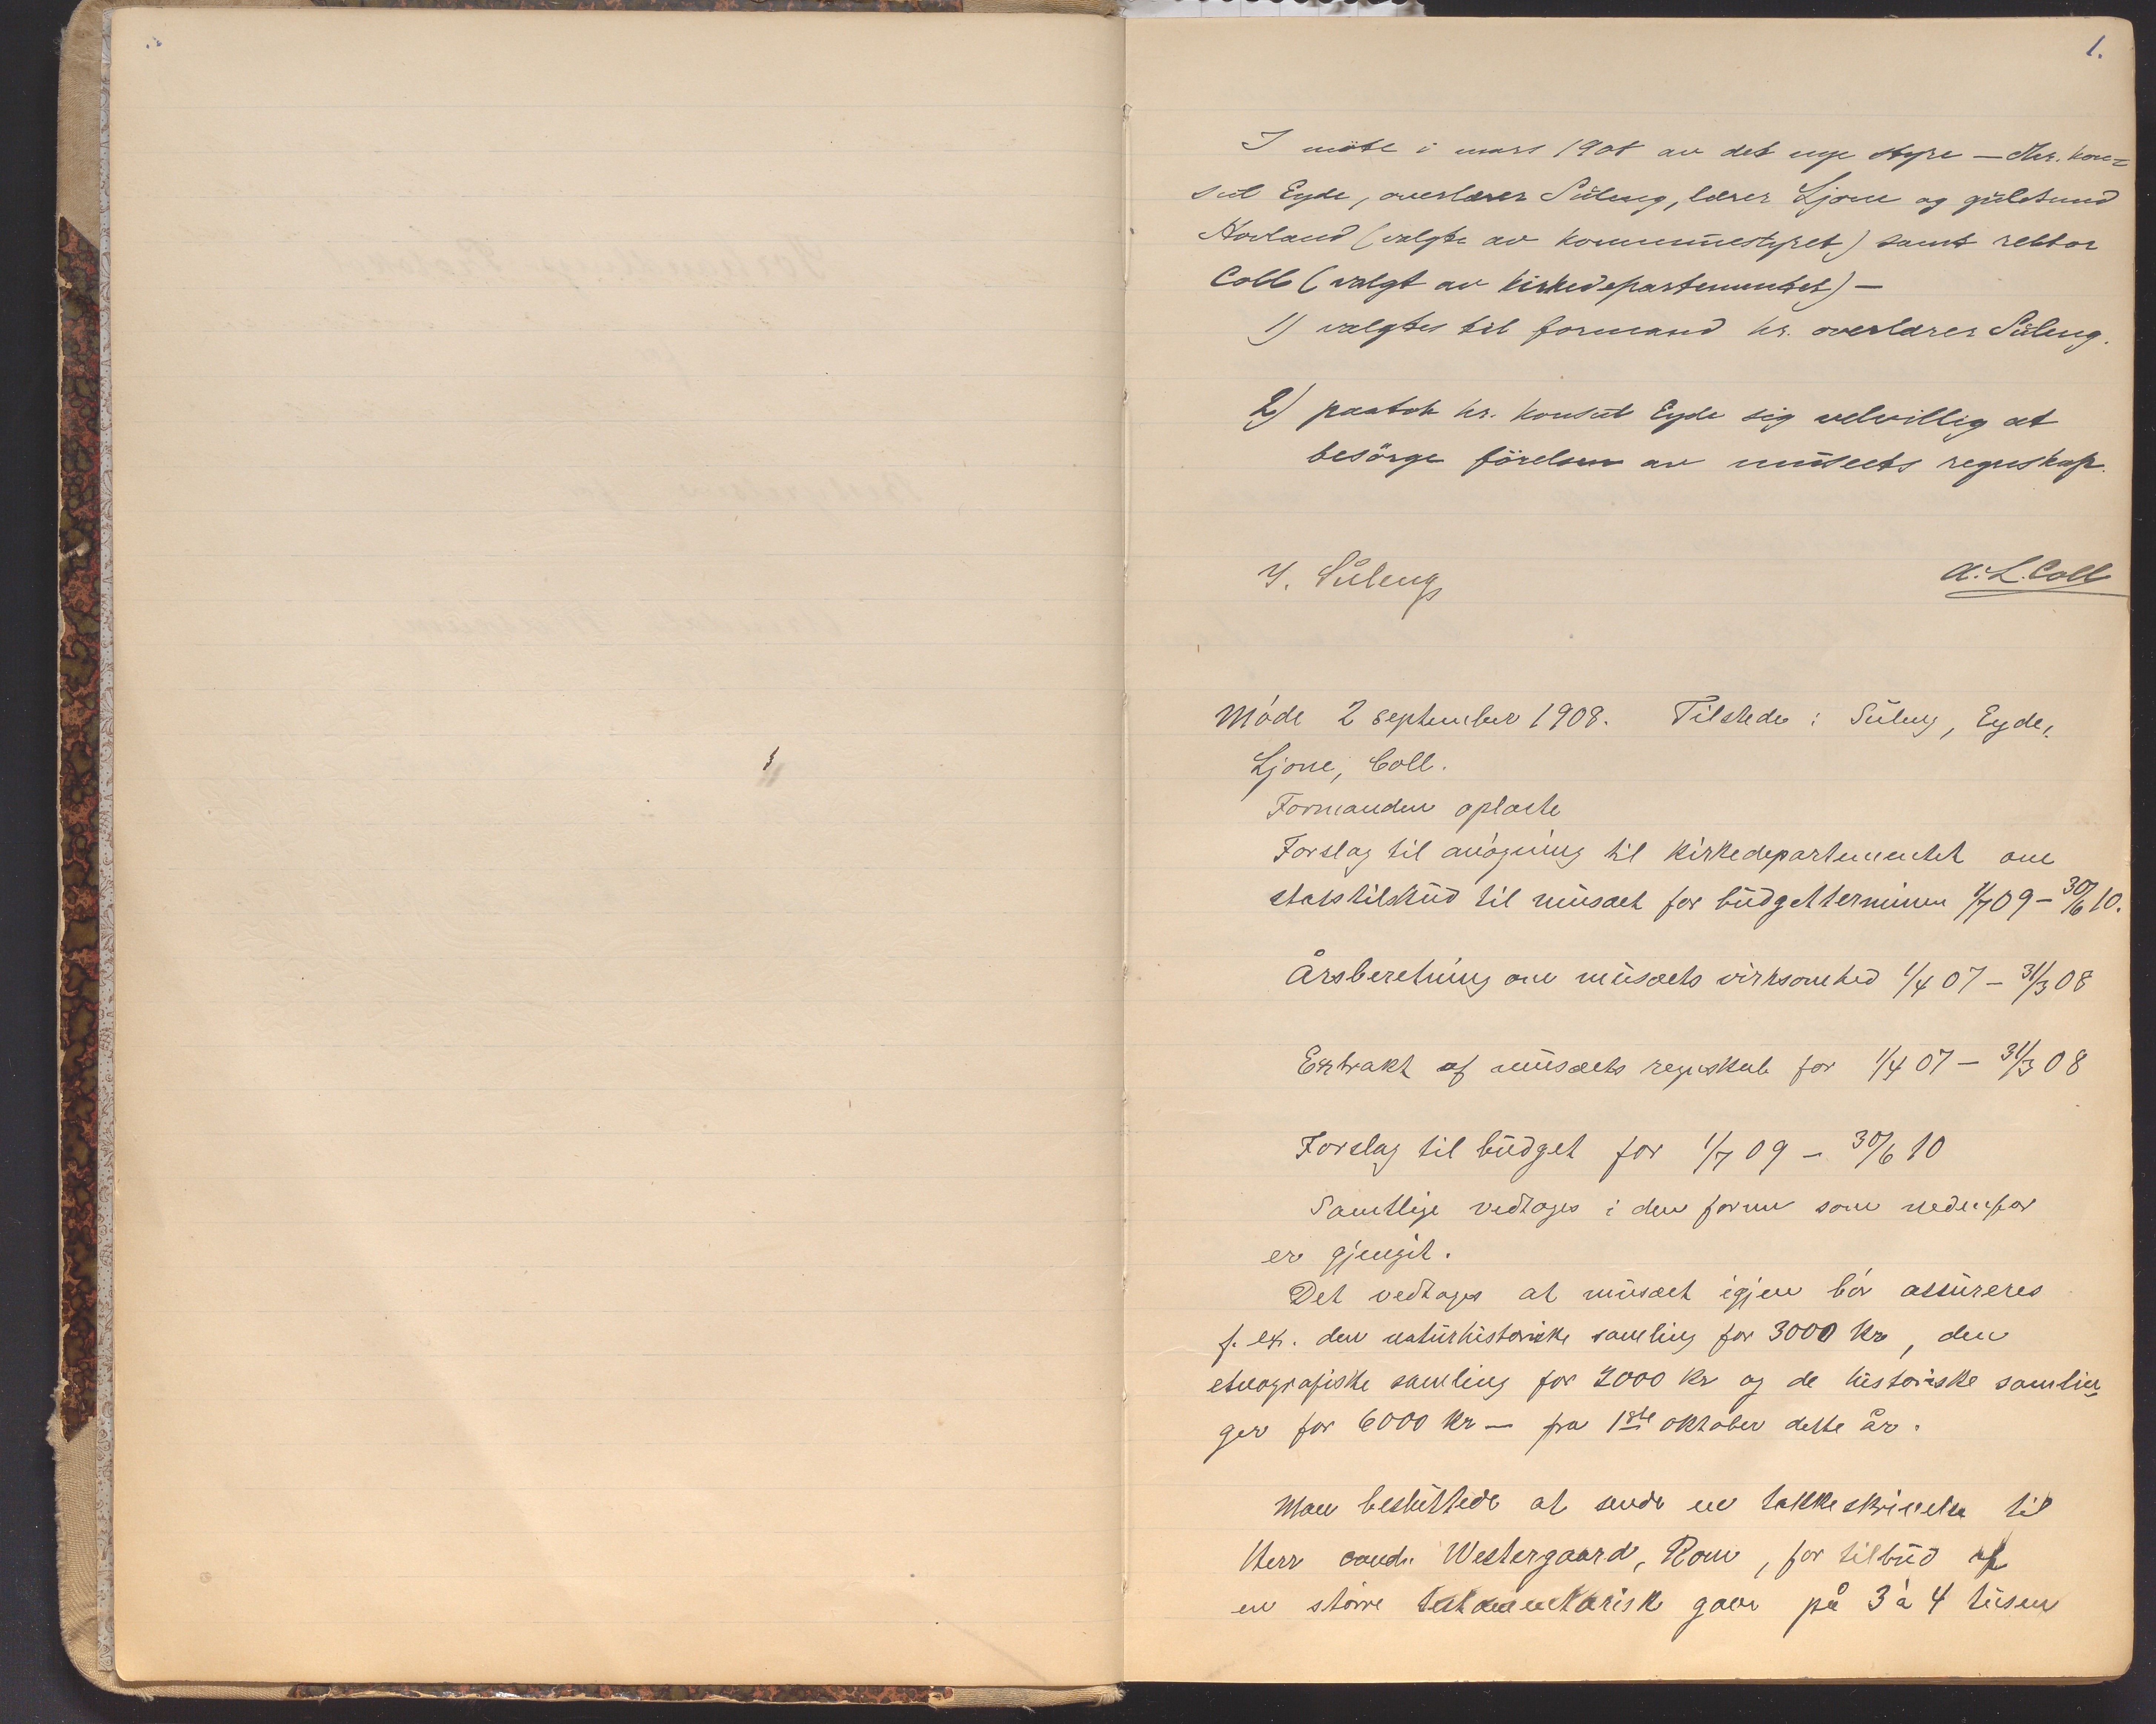 1.
I möte i mars 1908 av det nye styre — Hr. kon=
sul Eyde, overlærer Süleng, lærer Ljone og guldsmed
Hovland (valgte av kommunestyret) samt rektor
Coll (valgt av kirkedepartementet) —
1) valgtes til formand hr. overlærer Süleng.
2) paatok hr. konsul Eyde sig velvillig at
besörge förelsen av museets regnskap.
Y. Süleng
A. L. Coll
Möde 2 september 1908. Tilstede: Süleng, Eyde,
Ljone, Coll.
Formanden oplæste
Forslag til ansøgning til kirkedepartementet om
statstilskud til musæet for budgetterminen 1/7 09 – 30/6 10.
Årsberetning om musæets virksomhed 1/4 07 – 31/3 08
Extrakt af musæets regnskab for 1/4 07 – 31/3 08
Forslag til budget for 1/7 09 – 30/6 10
Samtlige vedtages i den form som nedenfor
er gjengit.
Det vedtages at musæet igjen bör assureres
f. ex. den naturhistoriske samling for 3000 kr, den
etnografiske samling for 2000 kr og de historiske samlin
ger for 6000 kr — fra 1ste oktober dette år.
Man besluttede at sende en takkeskrivelse til
Herr cand. Westergaard, Rom, for tilbud af
en större testamentarisk gave på 3 à 4 tusen